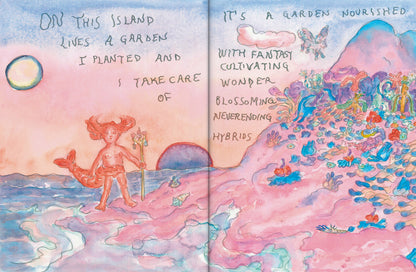 ON THIS ISLAND
LIVES A GARDEN
I PLANTED AND
I TAKE CARE
OF
IT'S A GARDEN NOURISHED
WITH FANTASY
CULTIVATING
WONDER
BLOSSOMING
NEVERENDING
HYBRIDS